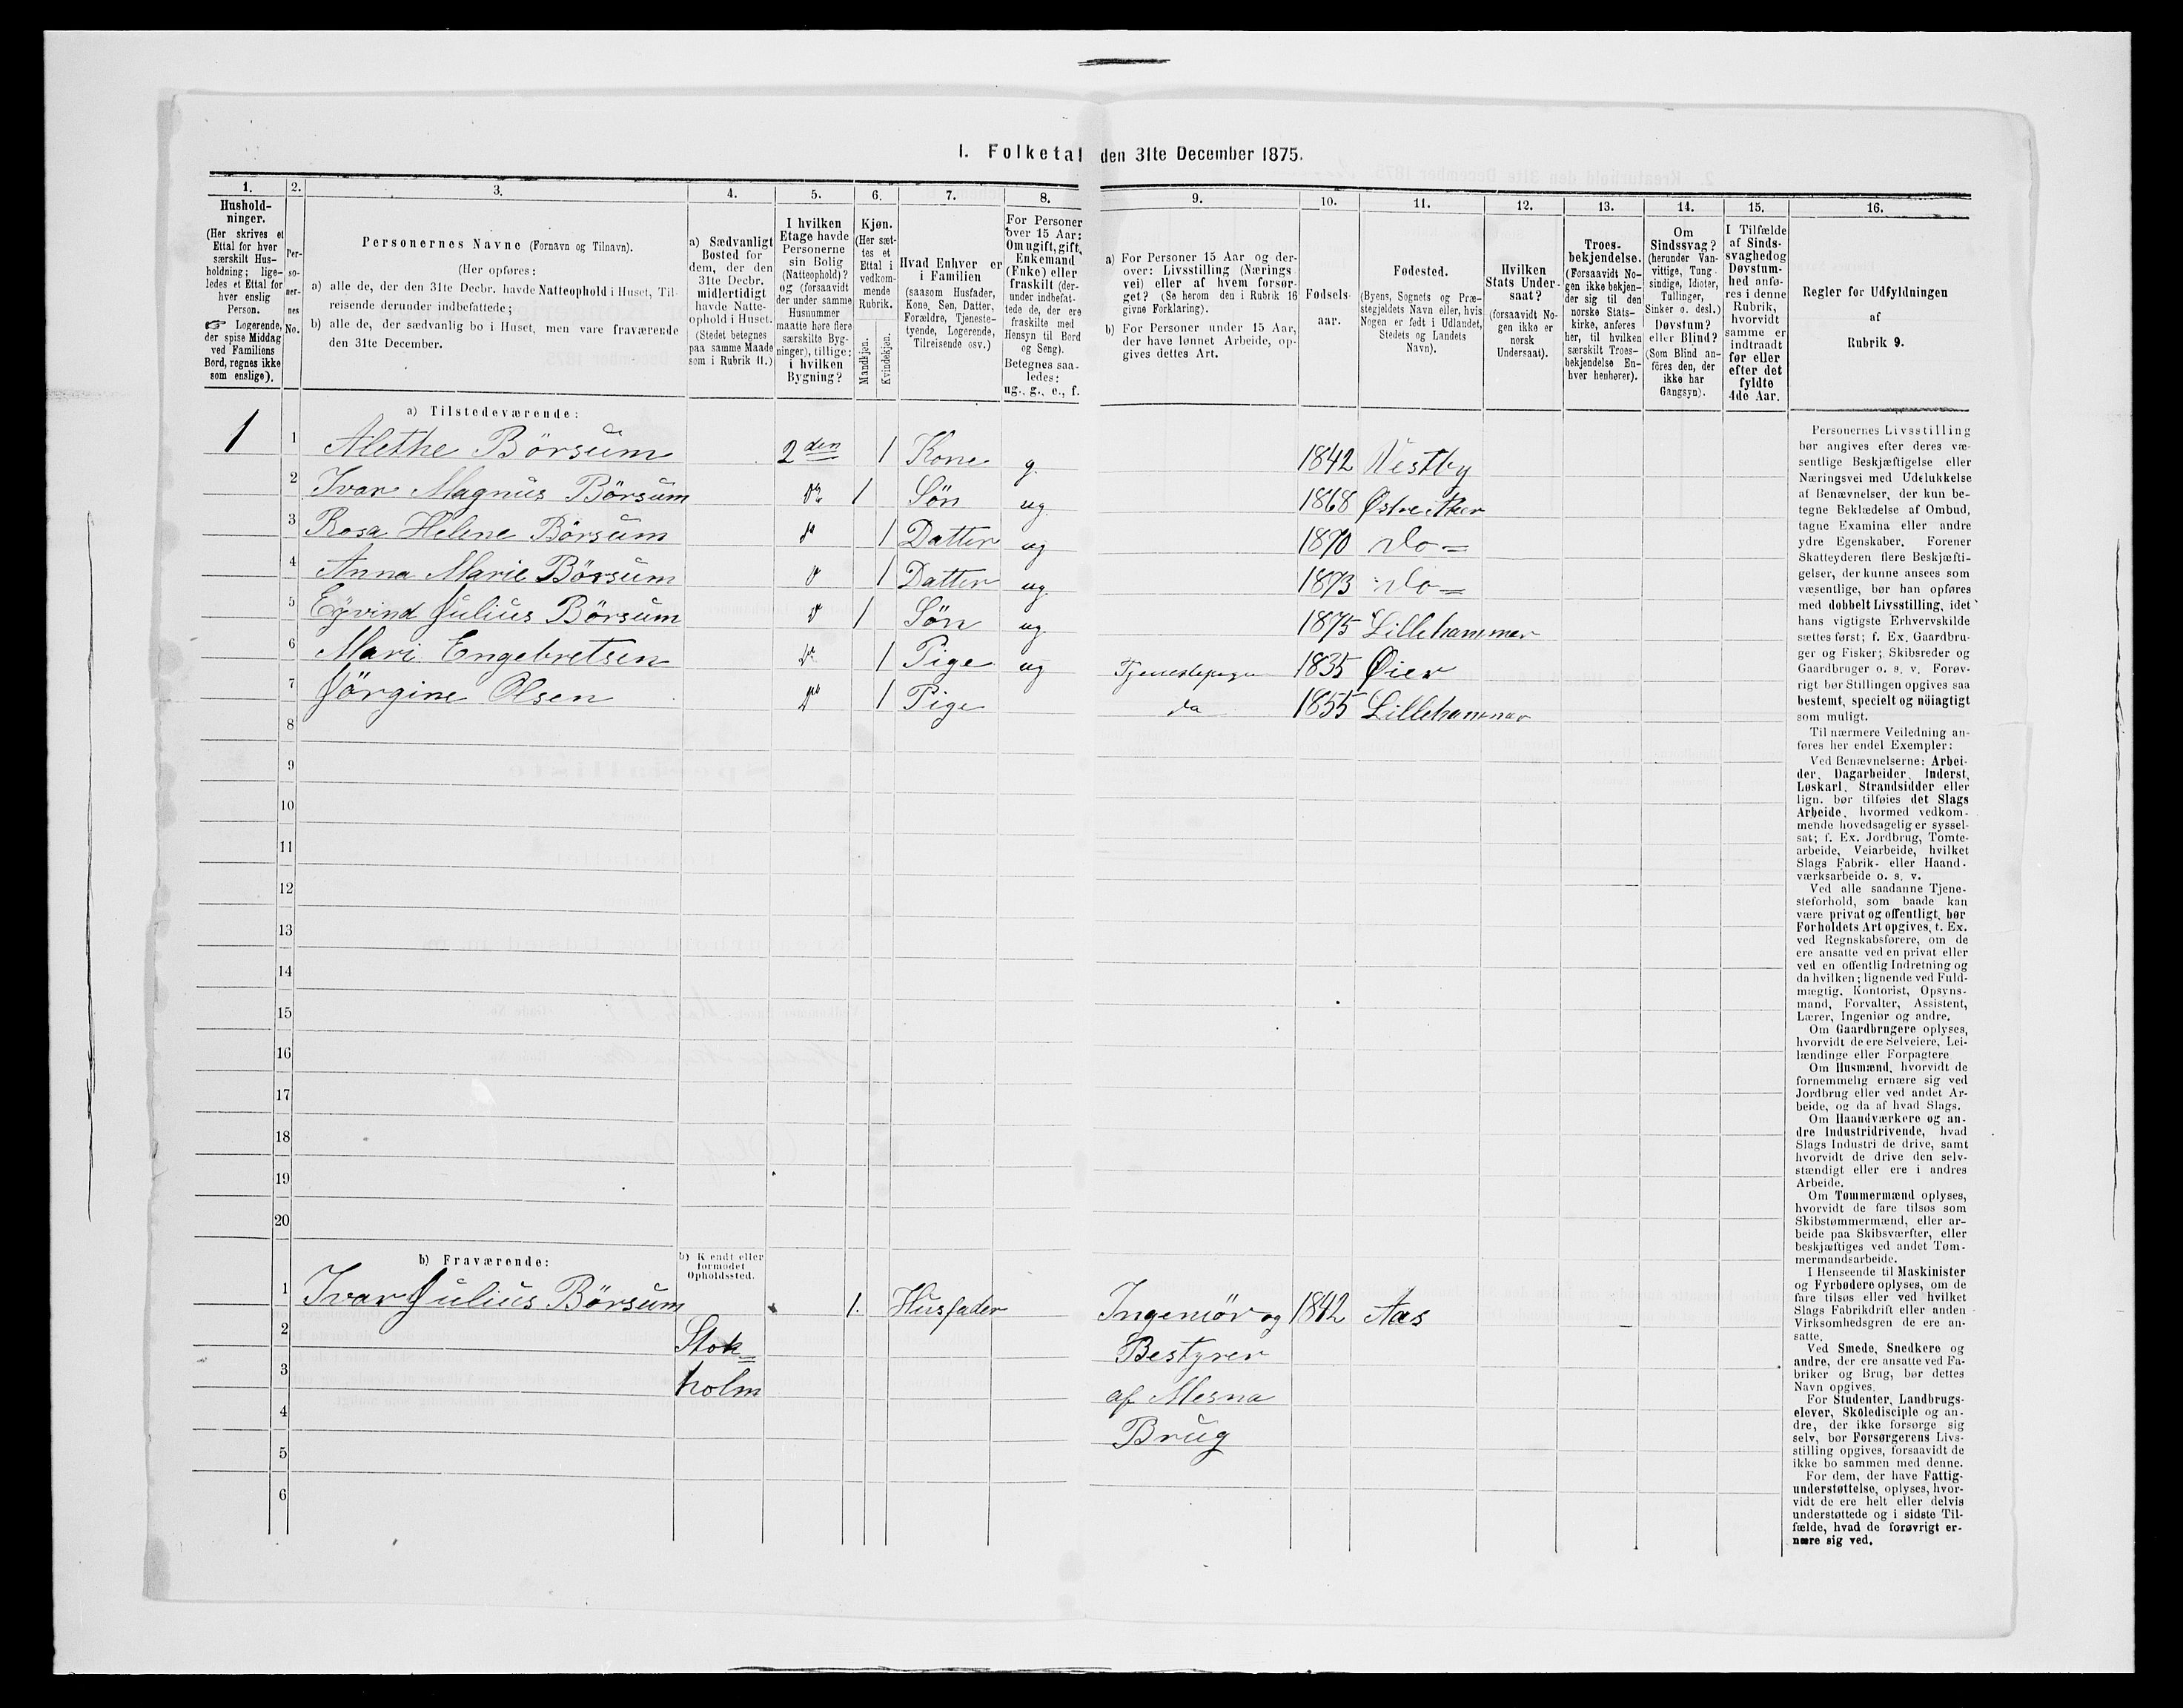 I. Folketal den 31te December 1875.
1. 2. 3. 4. 5. 6. 7. 8. 9. 10. 11. 12. 13. 14. 15. 16.
Hushold-
ninger.
(Her skrives et
Ettal for hver
særskilt Hus-
holdning; lige-
ledes et Ettal for
hver enslig
Person.
☞ Logerende,
der spise Middag
ved Familiens
Bord, regnes ikke
som enslige).
Per-
so-
ner-
nes
No.
Personernes Navne (Fornavn og Tilnavn).
(Her opføres:
a) alle de, der den 31te Decbr. havde Natteophold i Huset, Til-
reisende derunder indbefattede;
b) alle de, der sædvanlig bo i Huset, men vare fraværende
den 31te December.
a) Sædvanligt
Bosted for
dem, der den
31te Decbr.
midlertidigt
havde Natte-
ophold i Huset.
(Stedet betegnes
paa samme Maade
som i Rubrik 11.)
I hvilken
Etage havde
Personerne
sin Bolig
(Natteophold)?
og (forsaavidt
der under samme
Husnummer
maatte høre flere
særskilte Byg-
ninger), tillige:
i hvilken
Bygning?
Kjøn.
(Her sæt-
tes et
Ettal i
vedkom-
mende
Rubrik.
Mandkjøn.
Kvindekjøn.
Hvad Enhver er
i Familien
(saasom Husfader,
Kone, Søn, Datter,
Forældre, Tjeneste-
tyende, Logerende,
Tilreisende osv.)
For Personer
over 15 Aar:
Om ugift, gift,
Enkemand
(Enke) eller
fraskilt (der-
under indbefat-
tede de, der ere
fraskilte med
Hensyn til Bord
og Seng).
Betegnes saa-
ledes:
ug., g., e., f.
a) For Personer 15 Aar og der-
over: Livsstilling (Nærings
vei) eller af hvem forsør-
get? (Se herom den i Rubrik 16
givne Forklaring).
b) For Personer under 15 Aar,
der have lønnet Arbeide, op-
gives dettes Art.
Fødsels-
aar.
Fødested.
(Byens, Sognets og Præ-
stegjeldets Navn eller, hvis
Nogen er født i Udlandet,
Stedets og Landets
Navn).
Hvilken
Stats Under-
saat?
(forsaavidt No-
gen ikke er
norsk
Undersaat).
Troes-
bekjendelse.
(Forsaavidt No-
gen ikke bekjen-
der sig til den
norske Stats-
kirke, anføres
her, til hvilken
særskilt Troes-
bekjendelse En-
hver henhører).
Om
Sindssvag?
(herunder Van-
vittige, Tung
sindige, Idioter,
Tullinger,
Sinker o. desl.)
Døvstum?
eller Blind?
(Som Blind an-
føres den, der
ikke har
Gangsyn).
I Tilfælde
af Sinds-
svaghed og
Døvstum-
hed anfø-
res i denne
Rubrik,
hvorvidt
samme er
indtraadt
før eller
efter det
fyldte
4de Aar.
Regler for Udfyldningen
af
Rubrik 9.
a) Tilstedeværende:
1 1 Alethe Börsum 2den 1 Kone g. 1842 Vestby
2 Ivar Magnus Börsum 1 Søn ug. 1868 Østre Aker
3 Rosa Helene Börsum 1 Datter ug 1870 Do=
4 Anna Marie Börsum 1 Datter ug. 1873 Do=
5 Eyvind Julius Börsum 1 Søn ug. 1875 Lillehammer
6 Mari Engebretsen 1 Pige ug 1835 Øier
7 Jörgine Olsen 1 Pige do 1855 Lillehammer
8
9
10
11
12
13
14
15
16
17
18
19
20
b) Fraværende:
b) Kjendt eller
formodet
Opholdssted.
1 Ivar Julius Börsum 1. Husfader Ingeniör og 1842 Aas
2 Stok= Bestyrer
3 holm af Mesna
4 Brug
5
6
Personernes Livsstilling
bør angives efter deres væ-
sentlige Beskjæftigelse eller
Næringsvei med Udelukkelse
af Benævnelser, der kun be-
tegne Beklædelse af Ombud,
tagne Examina eller andre
ydre Egenskaber. Forener
Skatteyderen flere Beskjæfti-
gelser, der kunne ansees som
væsentlige, bør han opføres
med dobbelt Livsstilling, idet
hans vigtigste Erhvervskilde
sættes først; f. Ex. Gaardbru-
ger og Fisker; Skibsreder og
Gaardbruger o. s. v. Forøv-
rigt bør Stillingen opgives saa
bestemt, specielt og nöiagtigt
som muligt.
Til nærmere Veiledning an-
føres her endel Exempler:
Ved Benævnelserne: Arbei-
der, Dagarbeider, Inderst,
Løskarl, Strandsidder eller
lign. bør tilføies det Slags
Arbeide, hvormed vedkom-
mende hovedsagelig er syssel-
sat; f. Ex. Jordbrug, Tomte-
arbeide, Veiarbeide, hvilket
Slags Fabrik- eller Haand-
værksarbeide o. s. v.
Ved alle saadanne Tjene-
steforhold, som baade kan
være privat og offentligt, bør
Forholdets Art opgives, f. Ex.
ved Regnskabsførere, om de
ere ansatte ved en privat eller
ved en offentlig Indretning og
da hvilken; lignende ved Fuld-
mægtig, Kontorist, Opsyns-
mand, Forvalter, Assistent,
Lærer, Ingeniør og andre.
Om Gaardbrugere oplyses,
hvorvidt de ere Selveiere, Lei-
lændinge eller Forpagtere
Om Husmænd, hvorvidt de
fornemmelig ernære sig ved
Jordbrug eller ved andet Ar-
beide, og da af hvad Slags.
Om Haandværkere og an-
dre Industridrivende, hvad
Slags Industri de drive, samt
hvorvidt de drive den selv-
stændigt eller ere i andres
Arbeide.
Om Tømmermænd oplyses,
hvorvidt de fare tilsøs som
Skibstømmermænd, eller ar-
beide paa Skibsværfter, eller
beskjæftiges ved andet Tøm-
mermandsarbeide.
I Henseende til Maskinister
og Fyrbødere oplyses, om de
fare tilsøs eller ved hvilket
Slags Fabrikdrift eller anden
Virksomhedsgren de ere an-
satte.
Ved Smede, Snedkere og
andre, der ere ansatte ved Fa-
briker og Brug, bør dettes
Navn opgives.
For Studenter, Landbrugs-
elever, Skoledisciple og an-
dre, der ikke forsørge sig
selv, bør Forsørgerens Livs-
stilling opgives, forsaavidt de
ikke bo sammen med denne.
For dem, der have Fattig-
understøttelse, oplyses, hvor-
vidt de ere helt eller delvis
understøttede og i sidste Til-
fælde, hvad de forøvrigt er-
nære sig ved.